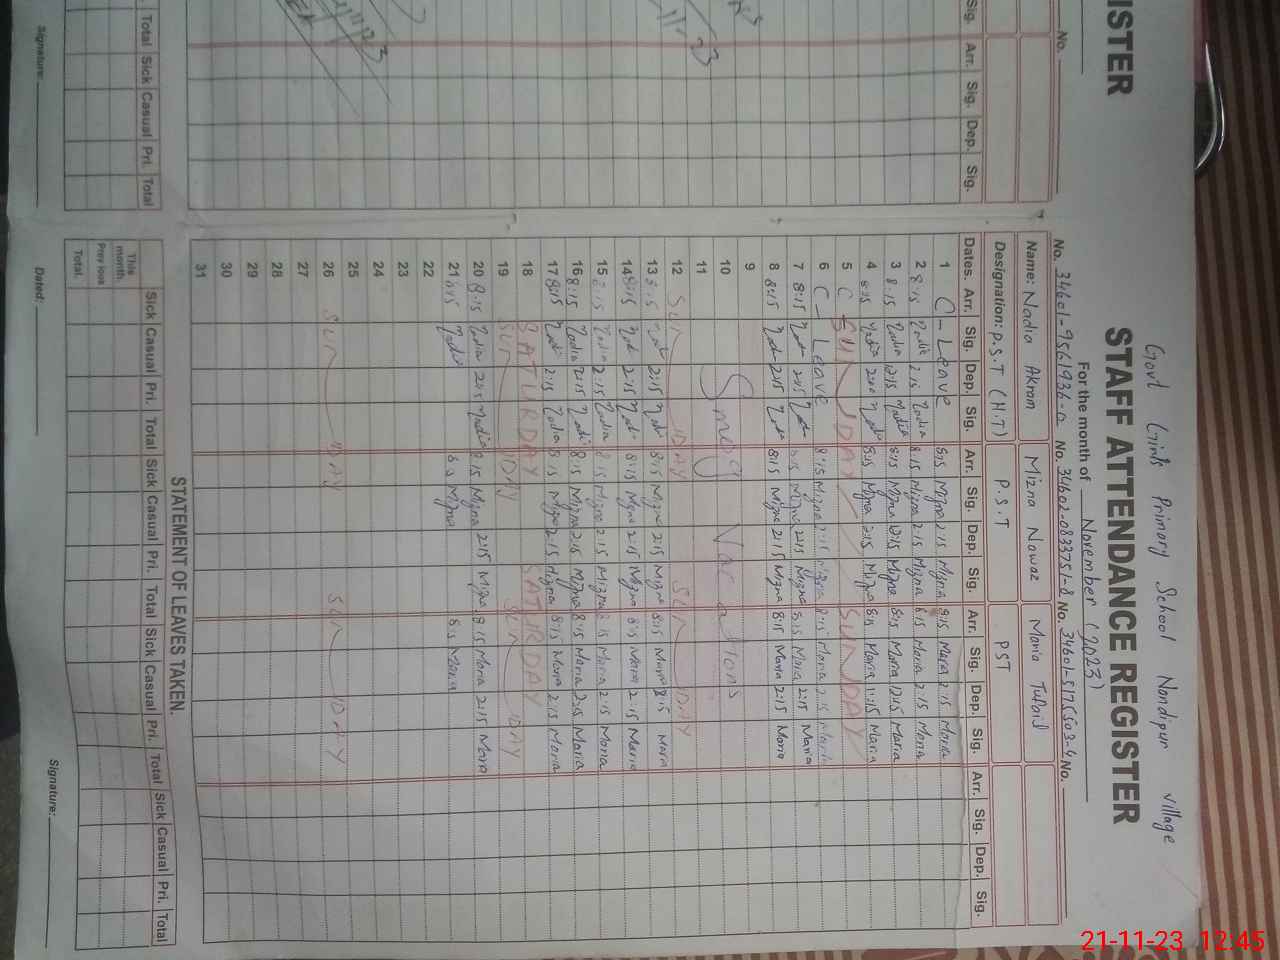 Govt Girls Primary School Nandipur village
STAFF ATTENDANCE REGISTER
For the month of November (2023)
No. 34601-9561936-2 No. 34602-0833751-8 No. 34601-5175503-4 No.
Name: Nadia Akram Mizna Nawaz Maria Tufail
Designation: P.S.T (H.T) P.S.T PST
Dates. Arr. Sig. Dep. Sig. Arr. Sig. Dep. Sig. Arr. Sig. Dep. Sig. Arr. Sig. Dep. Sig.
1 C-Leave 8:15 Mizna 2:15 Mizna 8:15 Maria 2:15 Maria
2 8:15 Nadia 2:15 Nadia 8:15 Mizna 2:15 Mizna 8:15 Maria 2:15 Maria
3 8:15 Nadia 12:15 Nadia 8:15 Mizna 12:15 Mizna 8:15 Maria 12:15 Maria
4 8:15 Nadia Nadia 8:15 Mizna 2:15 Mizna 8:15 Maria Maria
5 SUNDAY SUNDAY
6 C-Leave 8:15 Mizna 2:15 Mizna 8:15 Maria 2:15 Maria
7 8:15 Nadia 2:15 Nadia 8:15 Mizna 2:15 Mizna 8:15 Maria 2:15 Maria
8 8:15 Nadia 2:15 Nadia 8:15 Mizna 2:15 Mizna 8:15 Maria 2:15 Maria
9
10 Smog Vacations
11
12 SUNDAY SUNDAY
13 8:15 Nadia 2:15 Nadia 8:15 Mizna 2:15 Mizna 8:15 Maria Maria
14 8:15 Nadia 2:15 Nadia 8:15 Mizna 2:15 Mizna 8:15 Maria 2:15 Maria
15 8:15 Nadia 2:15 Nadia 8:15 Mizna 2:15 Mizna 8:15 Maria 2:15 Maria
16 8:15 Nadia 2:15 Nadia 8:15 Mizna 2:15 Mizna 8:15 Maria 2:15 Maria
17 8:15 Nadia 2:15 Nadia 8:15 Mizna 2:15 Mizna 8:15 Maria 2:15 Maria
18 SATURDAY SATURDAY
19 SUNDAY SUNDAY
20 8:15 Nadia 2:15 Nadia 8:15 Mizna 2:15 Mizna 8:15 Maria 2:15 Maria
21 8:15 Nadia Mizna Maria
22
23
24
25
26 SUNDAY SUNDAY
27
28
29
30
31
STATEMENT OF LEAVES TAKEN.
Sick Casual Pri. Total Sick Casual Pri. Total Sick Casual Pri. Total Sick Casual Pri. Total
This month.
Prev ious
Total.
Dated: Signature:
ISTER
No.
Sig. Arr. Sig. Dep. Sig.
Total Sick Casual Pri. Total
Signature:
21-11-23 12:45